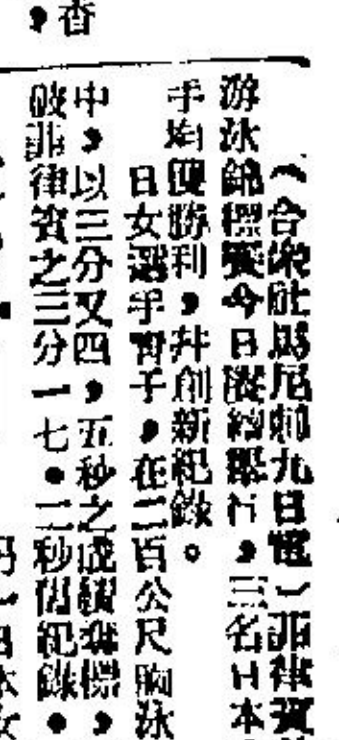 （合衆社馬尼剌九日電）菲律賓
游泳錦標賽今日繼續舉行，三名日本
手均獲勝利，幷創新紀錄。
日女選手子，在二百公尺胸泳
中，以三分又四，五秒之成績奪標，
破菲律賓之三分一七．二秒舊紀錄．
日本女